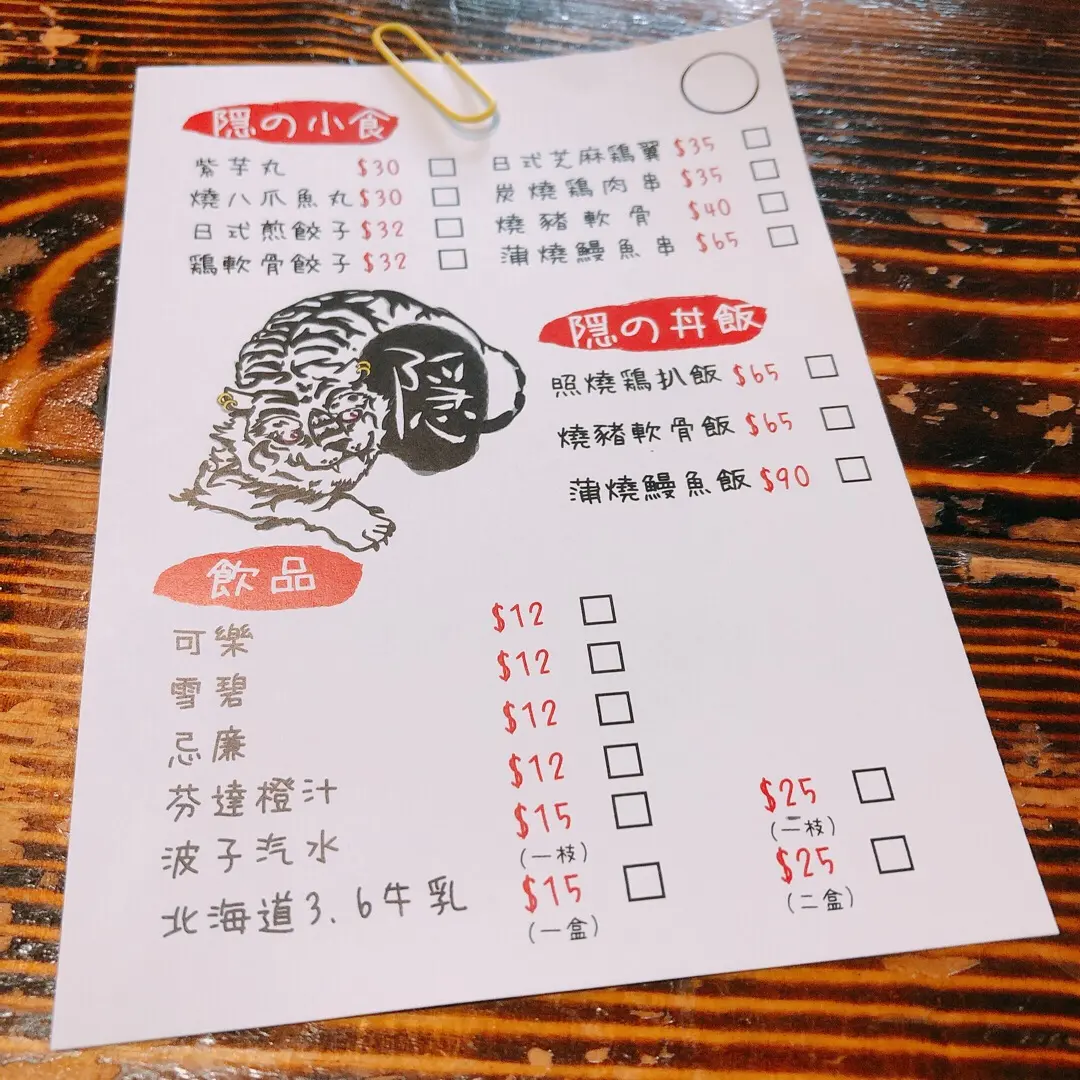 隱の小食
紫芋丸 $30
燒八爪魚丸 $30
日式煎餃子 $32
鶏軟骨餃子 $32
日式芝麻鶏翼 $35
炭燒鶏肉串 $35
燒豬軟骨 $40
蒲燒鰻魚串 $65
隱
隱の丼飯
照燒鶏扒飯 $65
燒豬軟骨飯 $65
蒲燒鰻魚飯 $90
飲品
可樂 $12
雪碧 $12
忌廉 $12
芬達橙汁 $12
波子汽水 $15 (一枝) $25 (二枝)
北海道3.6牛乳 $15 (一盒) $25 (二盒)